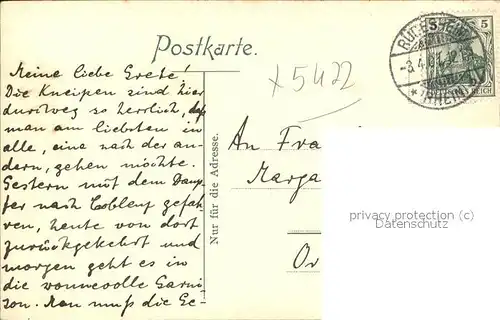 Postkarte.
RÜDESHEIM
5
-3.4.
* (RHEIN)
REICH
x5422
Meine liebe Grete!
Die Kneipen sind hier
durchweg so herrlich, daß
man am liebsten in
alle, eine nach der an-
dern, gehen möchte.
Gestern mit dem Damp-
fer nach Coblenz gefah-
ren, heute von dort
zurückgekehrt und
morgen geht es in
die wonnevolle Garni-
son. Man muß die Ge-
Nur für die Adresse.
An Fra
Marga
Or
privacy protection (c)
Datenschutz